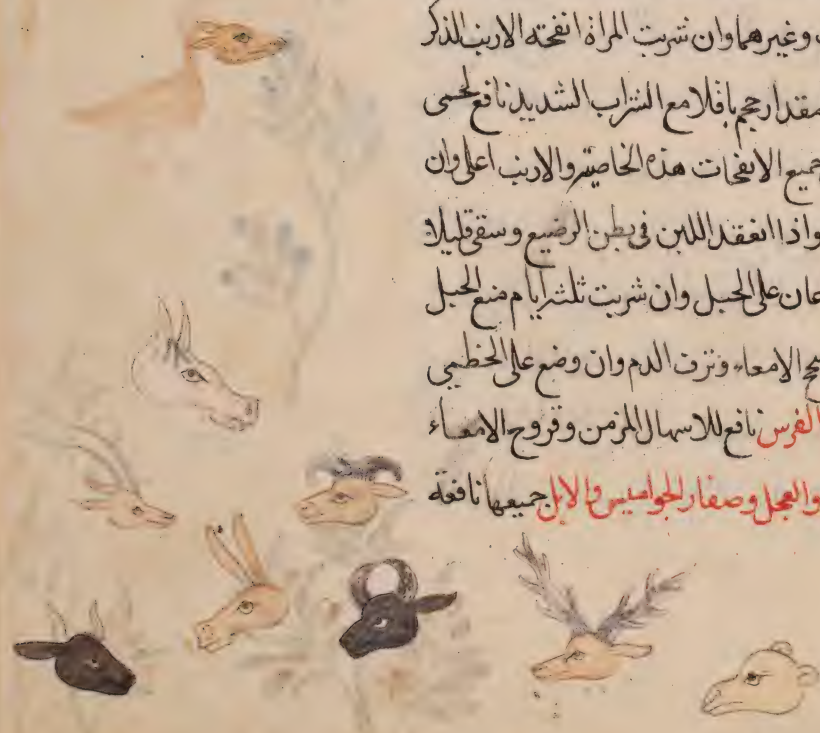 وغيرهما وان شربت المراة انفحته الارنب الذكر
مقدار حجم باقلا مع الشراب الشديد نافع لحمى
جميع الانفحات هذه الخاصية والارنب اعلى وان
واذا انعقد اللبن فى بطن الرضيع وسقى قليلا
عان على الحبل وان شربت ثلثة ايام منع الحبل
الامعاء ونزف الدم وان وضع على الخطمى
الفرس نافع للاسهال المزمن وقروح الامعاء
والعجل وصغار الجواميس والابل جميعها نافعة